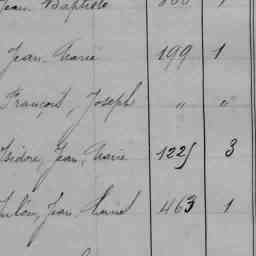 Jean Baptiste
Jean Marie 199 1
François, Joseph " "
Isidore, Jean, Marie 1225 3
Jean 463 1